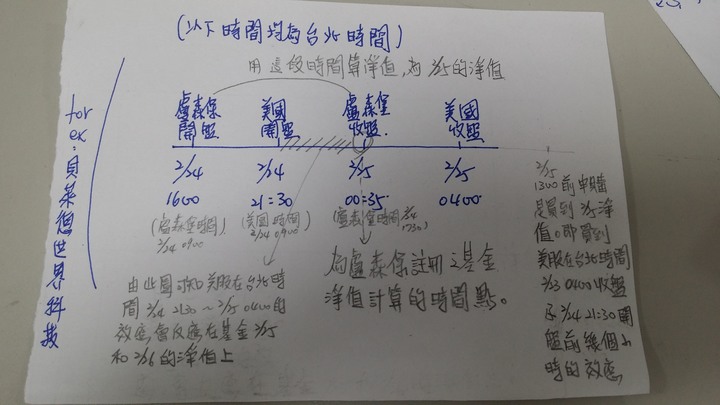 (以下時間均為台北時間)
用這段時間算淨值,為2/25的淨值
for ex:貝萊德世界科技
盧森堡開盤
美國開盤
盧森堡收盤
美國收盤
2/24
2/24
2/25
2/25
1600
21:30
00:35
0400
(盧森堡時間)
2/24 0900
(美國時間
2/24 0900)
(盧森堡時間2/24
1730)
為盧森堡註冊之基金
淨值計算的時間點。
由此圖可知美股在台北時
間2/24 2130~2/25 0400的
效應,會反應在基金2/25
和2/26的淨值上
2/25
1300前申購
是買到2/25淨
值。即買到
美股在台北時間
2/25 0400收盤
及2/24 21:30開
盤前幾個小
時的效應